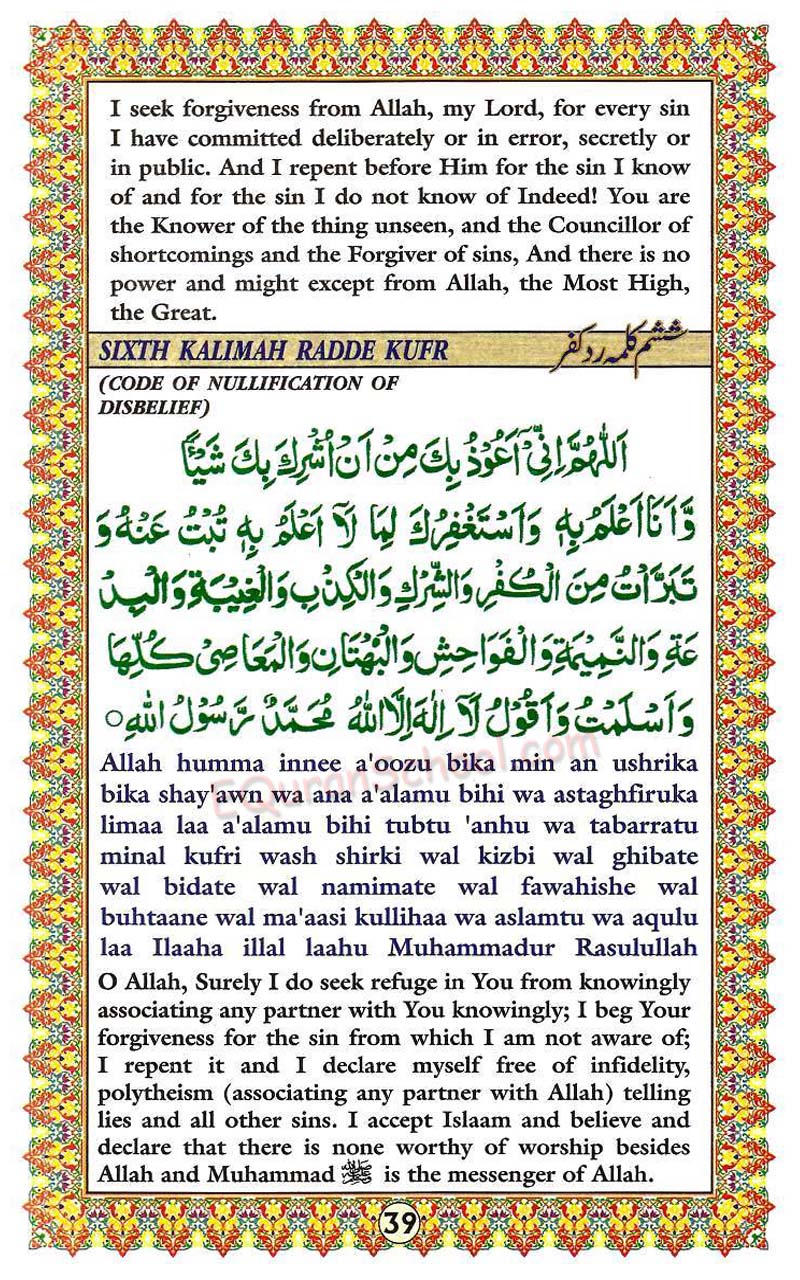 I seek forgiveness from Allah, my Lord, for every sin
I have committed deliberately or in error, secretly or
in public. And I repent before Him for the sin I know
of and for the sin I do not know of Indeed! You are
the Knower of the thing unseen, and the Councillor of
shortcomings and the Forgiver of sins, And there is no
power and might except from Allah, the Most High,
the Great.
SIXTH KALIMAH RADDE KUFR ششم کلمہ رد کفر
(CODE OF NULLIFICATION OF
DISBELIEF)
اَللّٰهُمَّ اِنِّيْٓ اَعُوْذُ بِكَ مِنْ اَنْ اُشْرِكَ بِكَ شَيْئًا
وَّاَنَا اَعْلَمُ بِهٖ وَاَسْتَغْفِرُكَ لِمَا لَآ اَعْلَمُ بِهٖ تُبْتُ عَنْهُ وَ
تَبَرَّاْتُ مِنَ الْكُفْرِ وَالشِّرْكِ وَالْكِذْبِ وَالْغِيْبَةِ وَالْبِدْ
عَةِ وَالنَّمِيْمَةِ وَالْفَوَاحِشِ وَالْبُهْتَانِ وَالْمَعَاصِيْ كُلِّهَا
وَاَسْلَمْتُ وَاَقُوْلُ لَآ اِلٰهَ اِلَّا اللهُ مُحَمَّدٌ رَّسُوْلُ اللهِ ○
EQuranSchool.com
Allah humma innee a'oozu bika min an ushrika
bika shay'awn wa ana a'alamu bihi wa astaghfiruka
limaa laa a'alamu bihi tubtu 'anhu wa tabarratu
minal kufri wash shirki wal kizbi wal ghibate
wal bidate wal namimate wal fawahishe wal
buhtaane wal ma'aasi kullihaa wa aslamtu wa aqulu
laa Ilaaha illal laahu Muhammadur Rasulullah
O Allah, Surely I do seek refuge in You from knowingly
associating any partner with You knowingly; I beg Your
forgiveness for the sin from which I am not aware of;
I repent it and I declare myself free of infidelity,
polytheism (associating any partner with Allah) telling
lies and all other sins. I accept Islaam and believe and
declare that there is none worthy of worship besides
Allah and Muhammad ﷺ is the messenger of Allah.
39